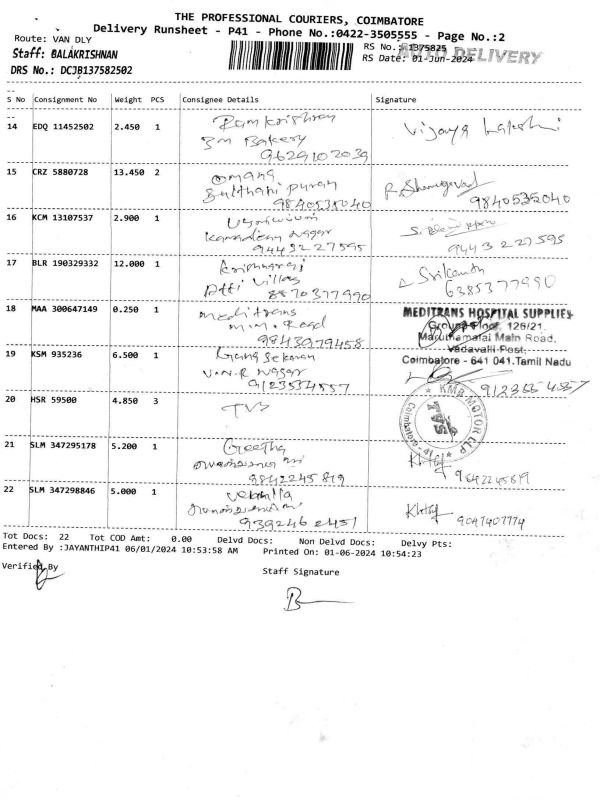 THE PROFESSIONAL COURIERS, COIMBATORE
Delivery Runsheet - P41 - Phone No.:0422-3505555 - Page No.:2
Route: VAN DLY
RS No.: 1375825
Staff: BALAKRISHNAN
RS Date: 01-Jun-2024
AUTO DELIVERY
DRS No.: DCJB137582502
S No Consignment No Weight PCS Consignee Details Signature
14 EDQ 11452502 2.450 1 Ramkrishnan Vijaya Lakshmi
3m Bakery
9629102039
15 CRZ 5880728 13.450 2
9840535040 9840535040
16 KCM 13107537 2.900 1
Nagar
9443227595 9443 227595
17 BLR 190329332 12.000 1 Srikanth
Villas 6385377990
8870377990
18 MAA 300647149 0.250 1 meditrans MEDITRANS HOSPITAL SUPPLIES
m.m. Road Ground Floor, 126/21.
9843979458 Maruthamalai Main Road,
Vadavalli Post,
Coimbatore - 641 041.Tamil Nadu
19 KSM 935236 6.500 1 Gana Sekaran
V.N.R Nagar
9123534557
20 HSR 59500 4.850 3 TVS KMA MOTOR LLP
TVS
Coimbatore
21 SLM 347295178 5.200 1 Geetha
9842245819 9842245819
22 SLM 347298846 5.000 1
9047407774
Tot Docs: 22 Tot COD Amt: 0.00 Delvd Docs: Non Delvd Docs: Delvy Pts:
Entered By :JAYANTHIP41 06/01/2024 10:53:58 AM Printed On: 01-06-2024 10:54:23
Verified By
Staff Signature